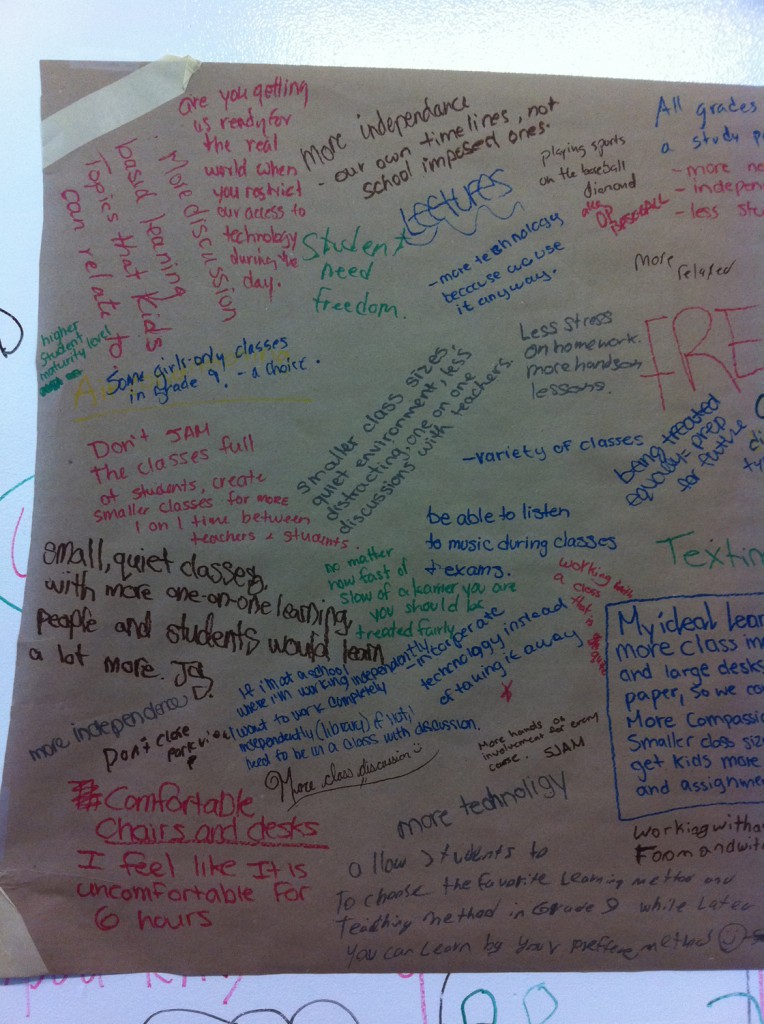 are you getting
us ready for
the real
world when
you restrict
our access to
technology
during the
day.
More discussion
based learning
Topics that kids
can relate to
more independance
- our own timelines, not
school imposed ones.
LECTURES
Student
need
freedom.
- more technology
because we use
it anyway.
playing sports
on the baseball
diamond
aka
OP
BASEBALL
All grades
a study
- more
- indepen
- less stu
More
related
higher
student
maturity level
Some girls-only classes
in grade 9. - a choice.
smaller class sizes,
quiet environment, less
distracting, one on one
discussions with teachers.
Less stress
on homework.
more hands on
lessons.
FRE
- variety of classes
being treated
equally = prep
for future
Don't JAM
The classes full
of students, create
smaller classes for more
1 on 1 time between
teachers & students
be able to listen
to music during classes
+ exams.
Textin
small, quiet classes,
with more one-on-one learning,
people and students would learn
a lot more. JS
no matter
how fast of
slow of a learner you are
you should be
treated fairly
- incorperate
technology instead
of taking it away
working with
a class
that is
quiet
My ideal lear
more class in
and large desks
paper, so we co
More Compassio
Smaller class size
get kids more
and assignme
more independence
Don't close
Parkview
If im at a school
where i'm working independantly
I want to work completely
independently (library) if not,
need to be in a class with discussion.
More class discussion
More hands on
involvement for every
course. SJAM
more technoligy
Comfortable
Chairs and desks
I feel like It is
uncomfortable for
6 hours
working witha
allow students to
To choose the favorite Learning method and
Teaching method in Grade 9 while Later
you can Learn by your preffere method